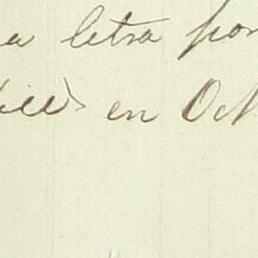 a letra por
en Oct